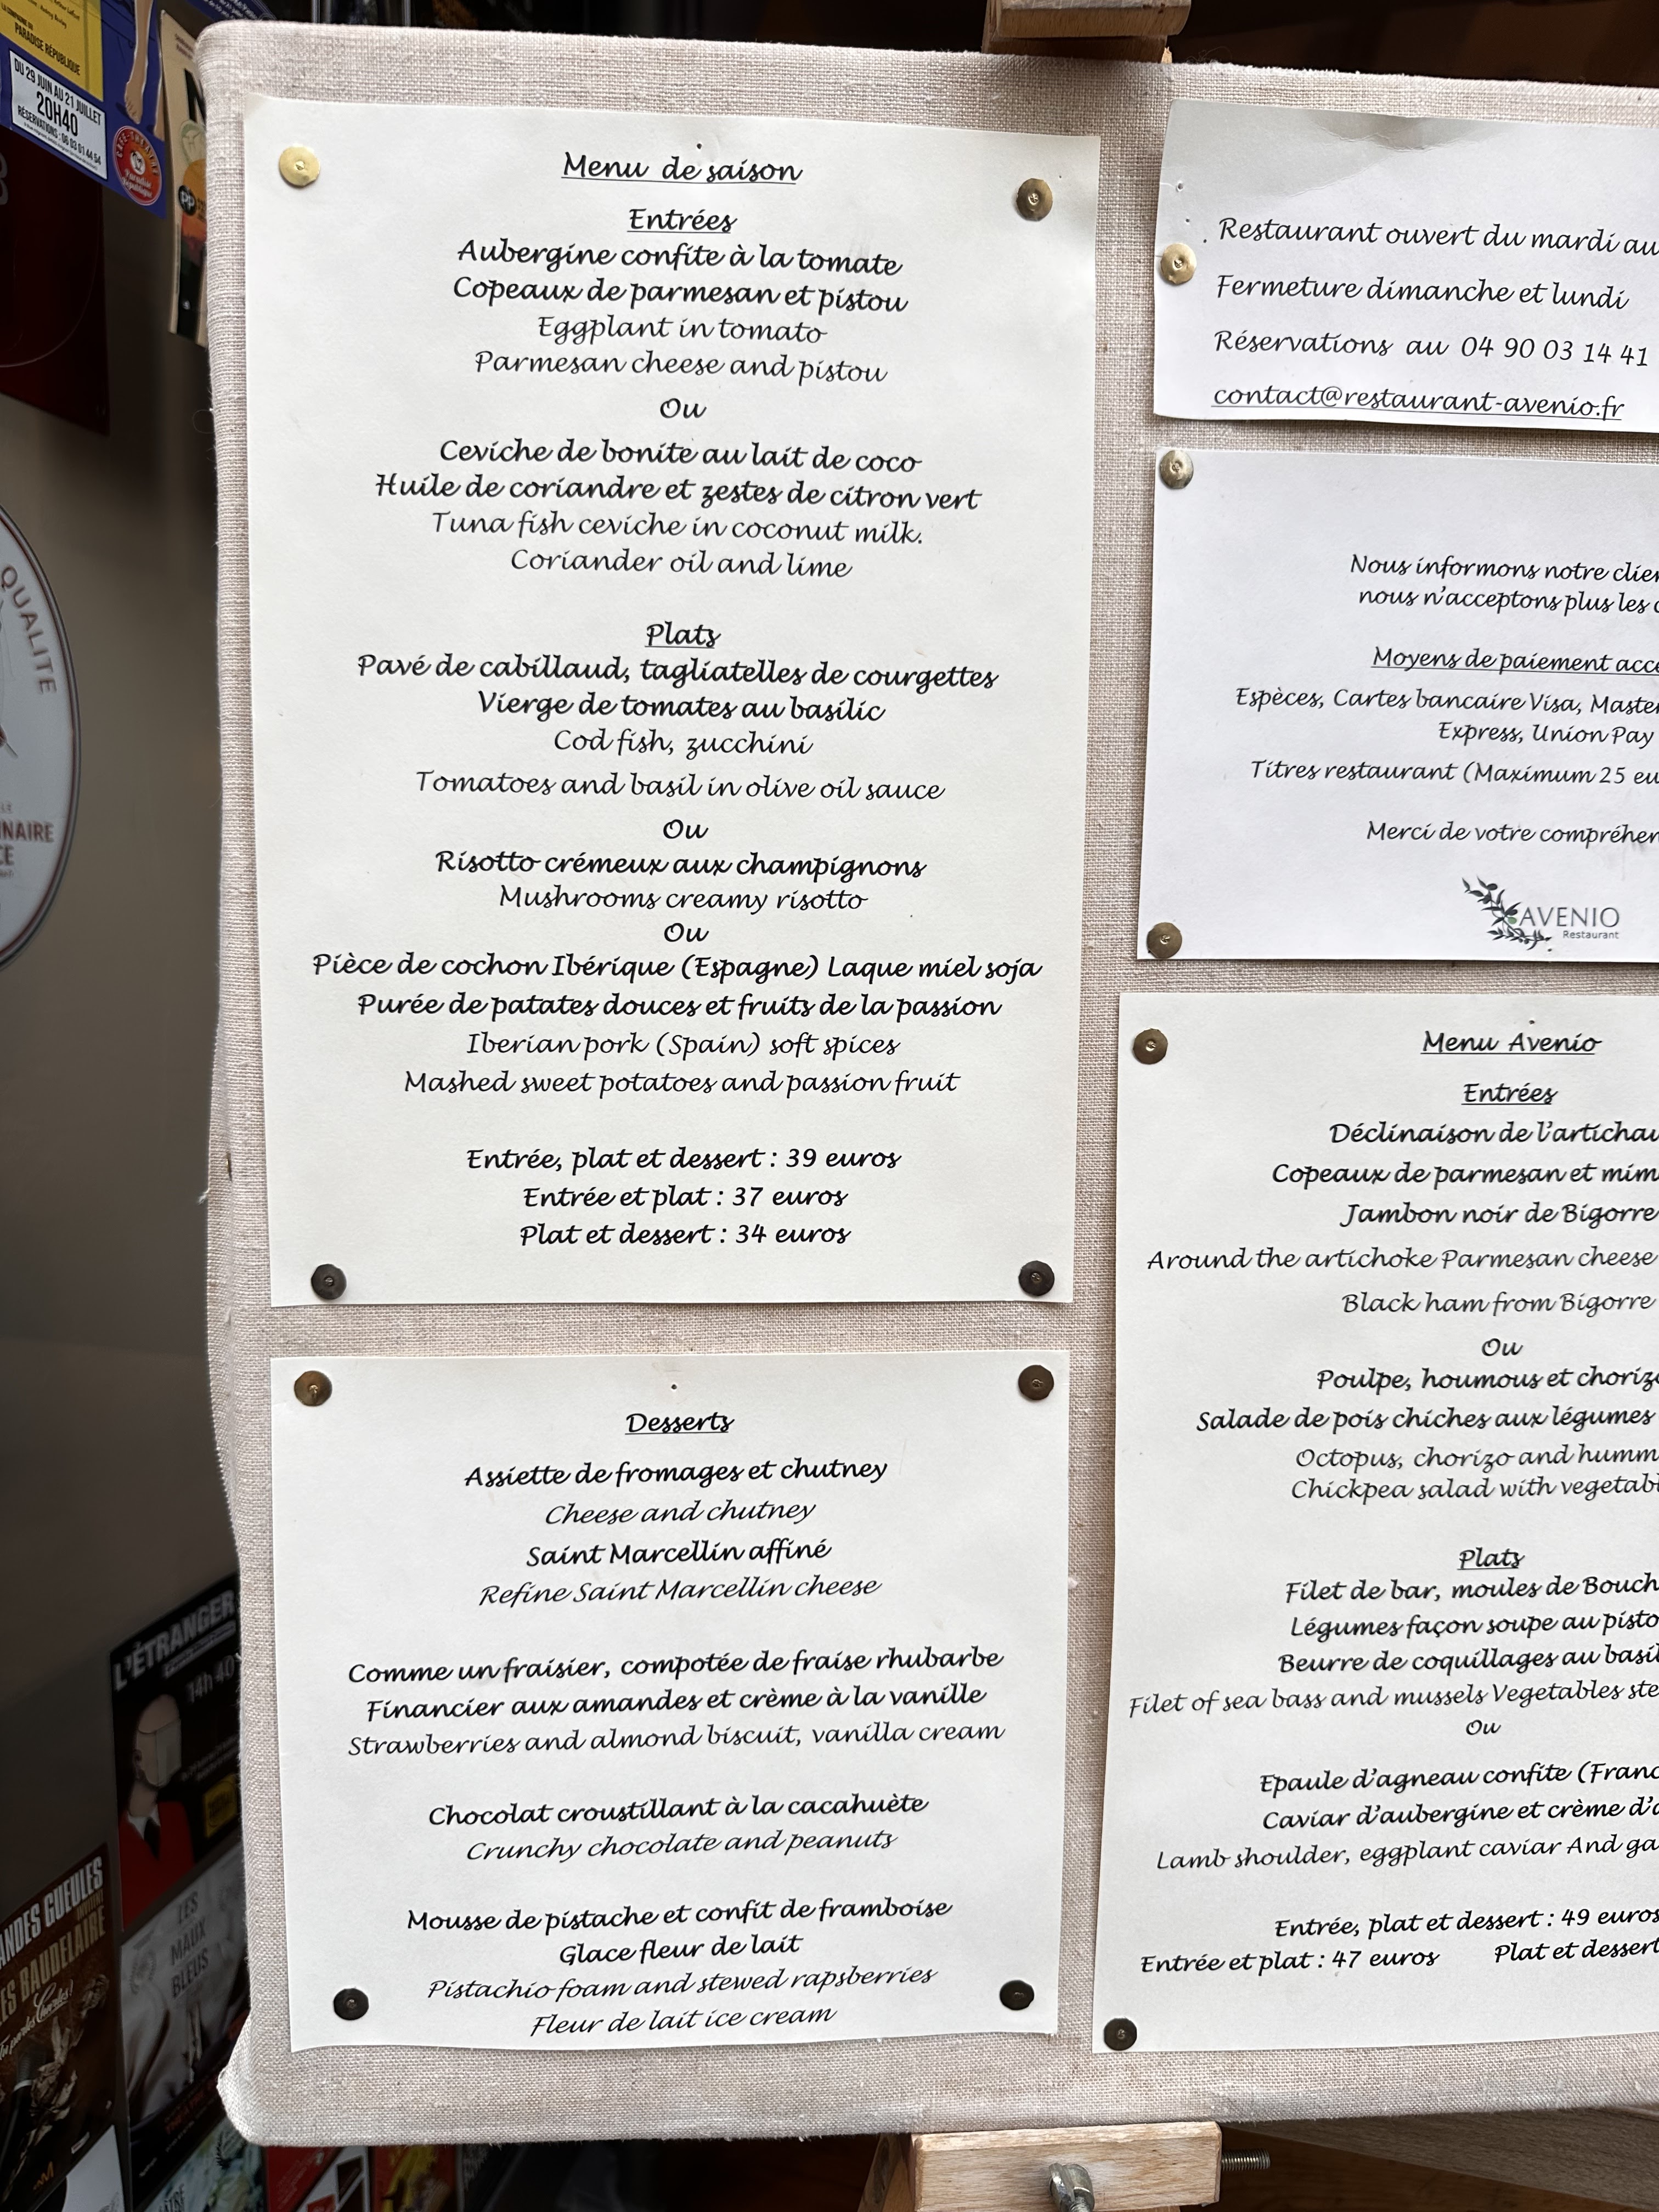 PARADISE RÉPUBLIQUE
DU 29 JUIN AU 21 JUILLET
20H40
RÉSERVATIONS : 06 03 61 44 54
QUALITE
NAIRE
CE
Menu de saison
Entrées
Aubergine confite à la tomate
Copeaux de parmesan et pistou
Eggplant in tomato
Parmesan cheese and pistou
Ou
Ceviche de bonite au lait de coco
Huile de coriandre et zestes de citron vert
Tuna fish ceviche in coconut milk.
Coriander oil and lime
Plats
Pavé de cabillaud, tagliatelles de courgettes
Vierge de tomates au basilic
Cod fish, zucchini
Tomatoes and basil in olive oil sauce
Ou
Risotto crémeux aux champignons
Mushrooms creamy risotto
Ou
Pièce de cochon Ibérique (Espagne) Laque miel soja
Purée de patates douces et fruits de la passion
Iberian pork (Spain) soft spices
Mashed sweet potatoes and passion fruit
Entrée, plat et dessert : 39 euros
Entrée et plat : 37 euros
Plat et dessert : 34 euros
Desserts
Assiette de fromages et chutney
Cheese and chutney
Saint Marcellin affiné
Refine Saint Marcellin cheese
Comme un fraisier, compotée de fraise rhubarbe
Financier aux amandes et crème à la vanille
Strawberries and almond biscuit, vanilla cream
Chocolat croustillant à la cacahuète
Crunchy chocolate and peanuts
Mousse de pistache et confit de framboise
Glace fleur de lait
Pistachio foam and stewed rapsberries
Fleur de lait ice cream
Restaurant ouvert du mardi au
Fermeture dimanche et lundi
Réservations au 04 90 03 14 41
contact@restaurant-avenio.fr
Nous informons notre clien
nous n'acceptons plus les c
Moyens de paiement acce
Espèces, Cartes bancaire Visa, Master
Express, Union Pay
Titres restaurant (Maximum 25 eu
Merci de votre compréhen
AVENIO
Restaurant
Menu Avenio
Entrées
Déclinaison de l'artichau
Copeaux de parmesan et mim
Jambon noir de Bigorre
Around the artichoke Parmesan cheese
Black ham from Bigorre
Ou
Poulpe, houmous et chorizo
Salade de pois chiches aux légumes
Octopus, chorizo and humm
Chickpea salad with vegetabl
Plats
Filet de bar, moules de Bouch
Légumes façon soupe au pisto
Beurre de coquillages au basil
Filet of sea bass and mussels Vegetables ste
Ou
Epaule d'agneau confite (Franc
Caviar d'aubergine et crème d'a
Lamb shoulder, eggplant caviar And ga
Entrée, plat et dessert : 49 euros
Entrée et plat : 47 euros Plat et dessert
L'ÉTRANGER
14h 40
ANDES GUEULES
ES BAUDELAIRE
LES
MAUX
BLEUS